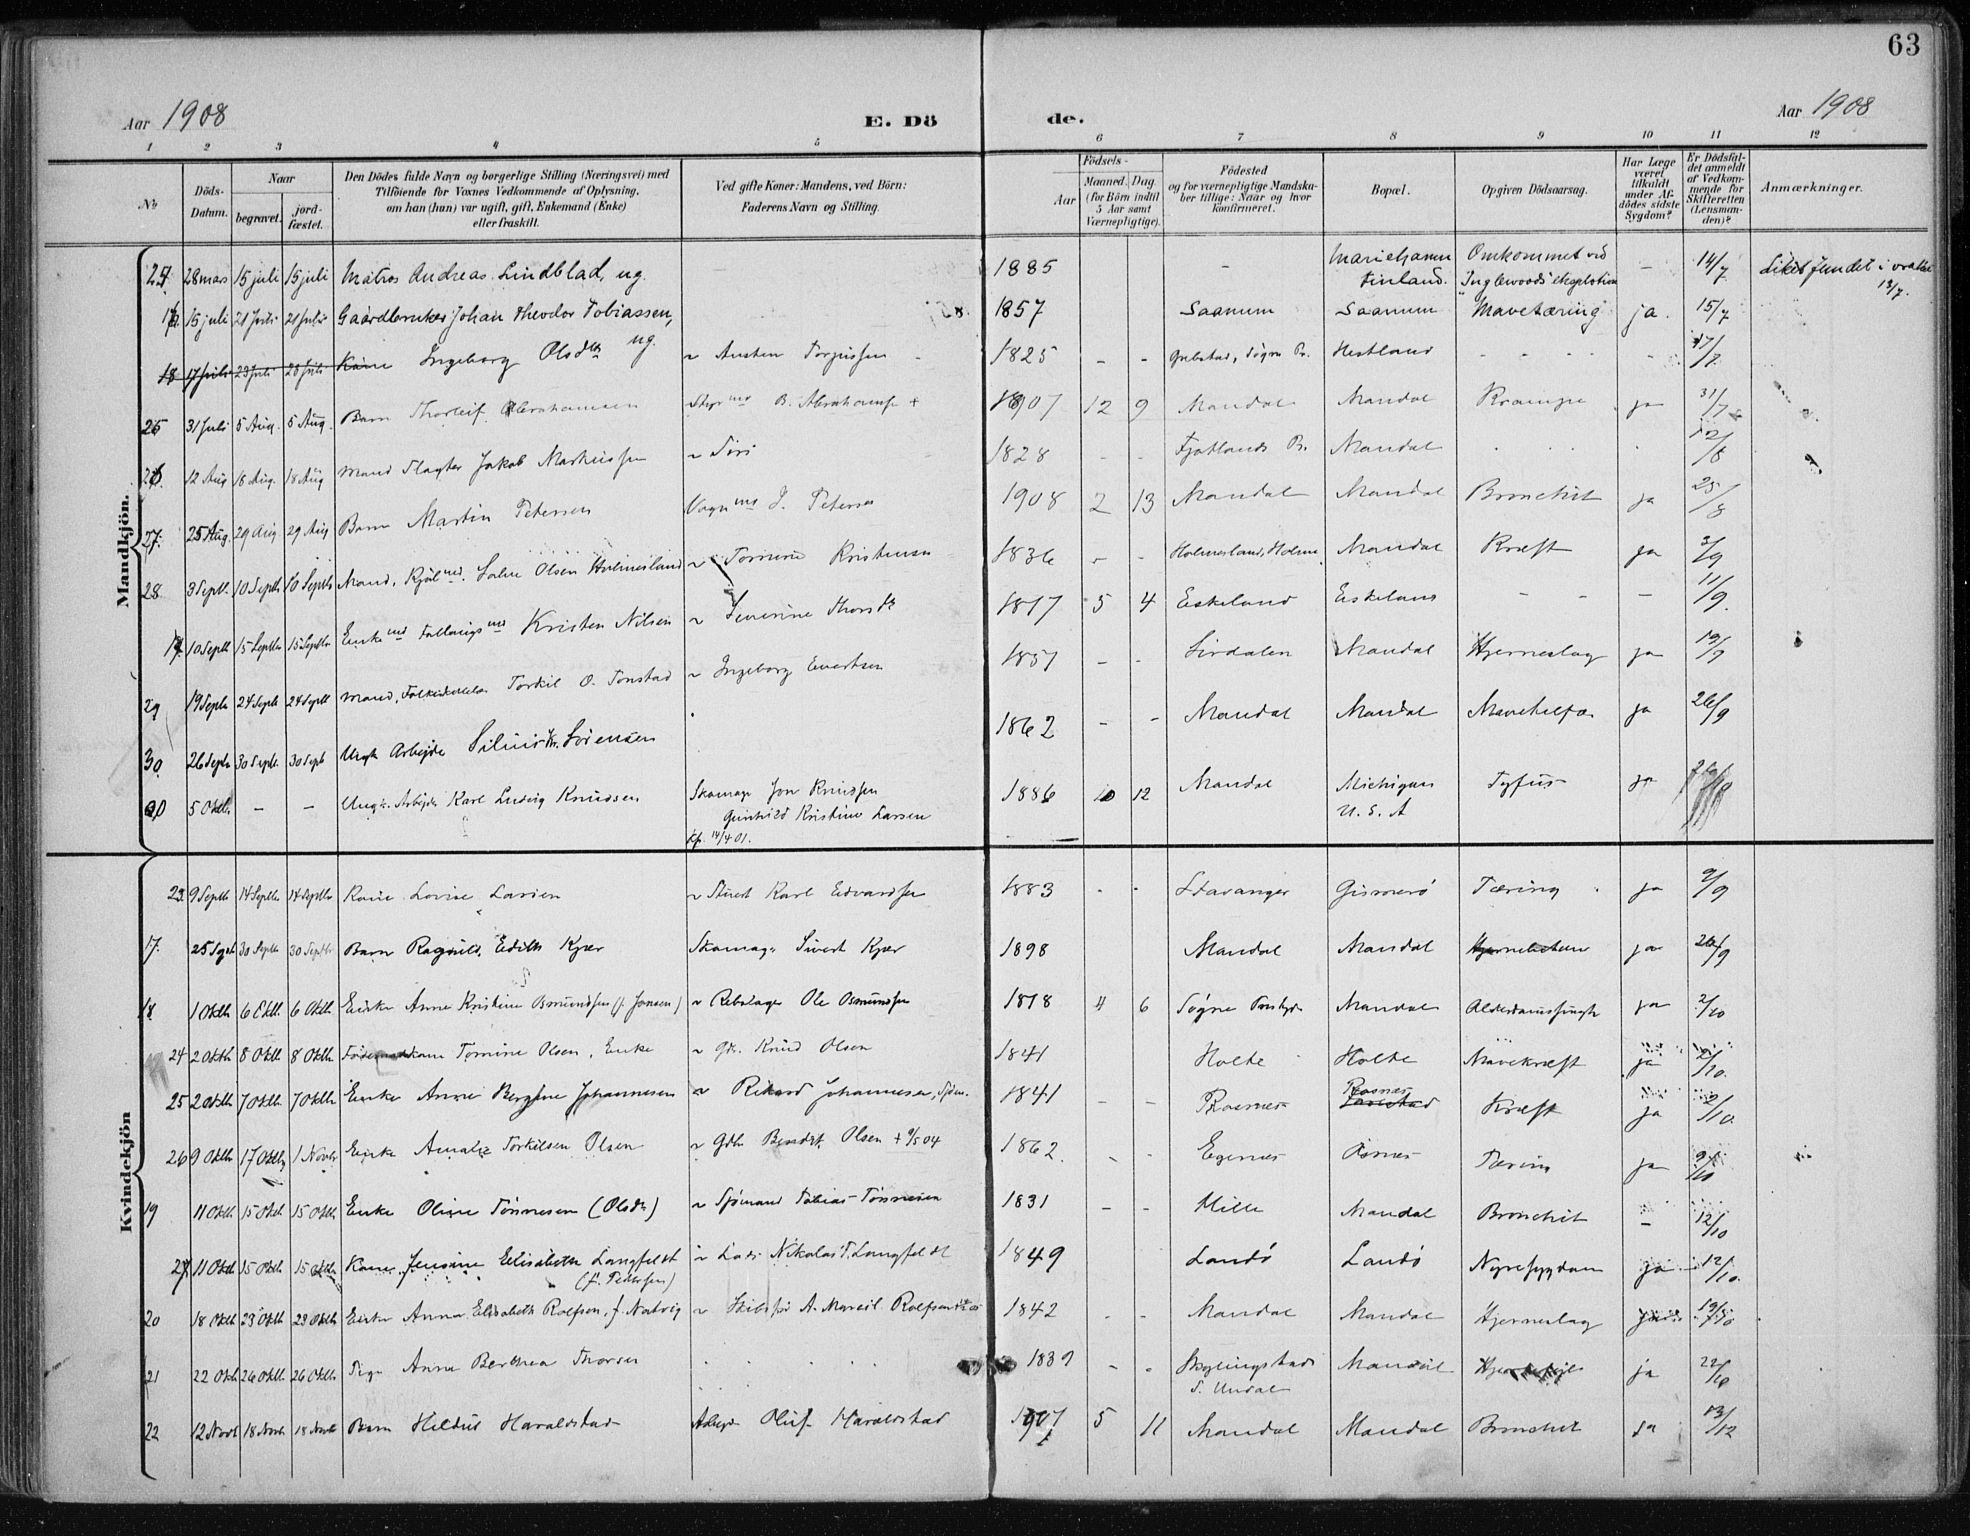 63
Aar 1908
E. Dö
de.
Aar 1908
1 2 3 4 5 6 7 8 9 10 11 12
No
Döds-
Datum.
Naar
begravet.
jord-
fæstet.
Den Dödes fulde Navn og borgerlige Stilling (Næringsvei) med
Tilföiende for Voxnes Vedkommende af Oplysning,
om han (hun) var ugift, gift, Enkemand (Enke)
eller fraskilt.
Ved gifte Koner: Mandens, ved Börn:
Faderens Navn og Stilling.
Födsels-
Aar
Maaned. Dag.
(for Börn indtil
5 Aar samt
Værnepligtige).
Födested
og for værnepligtige Mandska-
ber tillige: Naar og hvor
konfirmeret.
Bopæl.
Opgiven Dödsaarsag.
Har Læge
været
tilkaldt
under Af-
dödes sidste
Sygdom?
Er Dödsfal-
det anmeldt
af Vedkom-
mende for
Skifteretten
(Lensman-
den)?
Anmærkninger.
Mandkjön.
28 mars 15 juli 15 juli Matros Andreas Lindblad, ug. 1885 - Mariehamn Finland. Omkommet ved "Inglewoods" eksplosion - 14/7 Liket fundet i vraket 13/7.
15 juli 21 juli 21 juli Gaardbruker Johan Theodor Tobiassen, ug. 1857 Saanum Saanum Mavetæring ja. 15/7
18 17 juli 23 juli 23 juli Kone Ingeborg Olsdtr ~ Austen Torjussen 1825 - - Hestland 17/7
25 31 juli 5 Aug. 5 Aug. Barn Thorleif Abrahamsen B. Abrahams 1907 12 9 Mandal Mandal Krampe ja 31/7
26 12 Aug 18 Aug. 18 Aug Mand Jakob Markussen ~ Siri 1828 - - Fjotlands Pr. Mandal 12/8
27. 25 Aug. 29 Aug. 29 Aug Barn Martin Petersen Vogn md J. Petersen 1908 2 13 Mandal Mandal Bronchit ja 25/8
28 3 Septb. 10 Septb 10 Septb Mand, Olsen Holmesland ~ Tomine Kristensen 1836 - - Holmesland, Holme Mandal Kræft ja 3/9
10 Septb 15 Septbr 15 Septbr Enke md Kristen Nilsen ~ Severine 1817 5 4 Eskeland Eskeland - - - 11/9.
29 19 Septb 24 Septb 24 Septb Mand, Torkil O. Tonstad ~ Ingeborg Evertsen 1857 - - Sirdalen Mandal Hjerneslag ja 19/9
30. 26 Septb 30 Septb. 30 Septb Ungk Arbejder Sørensen 1862 - - Mandal Mandal ja 26/9
5 Oktb. - - Ungk. Arbejder Karl Ludvig Knudsen Skomager Jon Knudsen Gunhild Kristine Larsen 14/4 01. 1886 10 12 Mandal Michigan U. S. A Tyfus ja
Kvindekjön
23. 9 Septb 14 Septbr 14 Septbr Kone Lovise Larsen ~ Karl Edvardsen 1883 - - Stavanger Gismerö Tæring ja 9/9
17. 25 Septb 30 Septbr 30 Septbr Barn Ragnild, Edith Kjær Skomager Sivert Kjær 1898 Mandal Mandal ja 26/9
18 1 Oktb 6 Oktb 6 Oktb Enke Anne Kristine Osmundsen (f. Jensen) ~ Rebslager Ole Osmundsen 1818 4 6 Søgne Mandal ja 2/10
24 2 Oktb 8 Oktb 8 Oktb Tomine Olsen, Enke ~ Gbr. Knud Olsen 1841 Holte Holte Mavekræft ja 2/10.
25 2 Oktb 7 Oktb 7 Oktb Enke Anne Johannesen ~ Rikard Johannesen, 1841 - - Rosnes Rosnes Kræft ja 2/10.
26 9 Oktb 17 Oktb 1 Novbr Enke Amalie Torkilsen Olsen ~ Gbr. Olsen + 9/5 04 1862. - - Egernes Tæring ja 9/10
19 11 Oktb 15 Oktb 15 Oktb Enke Oline Tønnesen (Olsdtr) ~ Sjømand Tobias Tønnesen 1831 - - Hille Mandal Bronchit - 12/10
27. 11 Oktb 15 Oktb 15 Oktb Kone Jensine Elisabeth Langfeldt (f. Pedersen) ~ Lods Nikolai T. Langfeldt 1849 Landö Landö Nyresygdom ja 12/10.
20 18 Oktb 23 Oktb 23 Oktb Enke Anna Elisabeth Rolfsen, f. Natvig ~ A. Rolfsen 1842 - - Mandal Mandal Hjerneslag 19/10
21 22 Oktb 26 Oktb 26 Oktb Pige Anne Berthea Thorsen 1839 - - S. Undal Mandal ja 22/10
22 12 Novb 18 Novb 18 Novb Barn Hildur Haraldstad Arbejder Oluf Haraldstad 1907 5 11 Mandal Mandal Bronchit ja 13/12